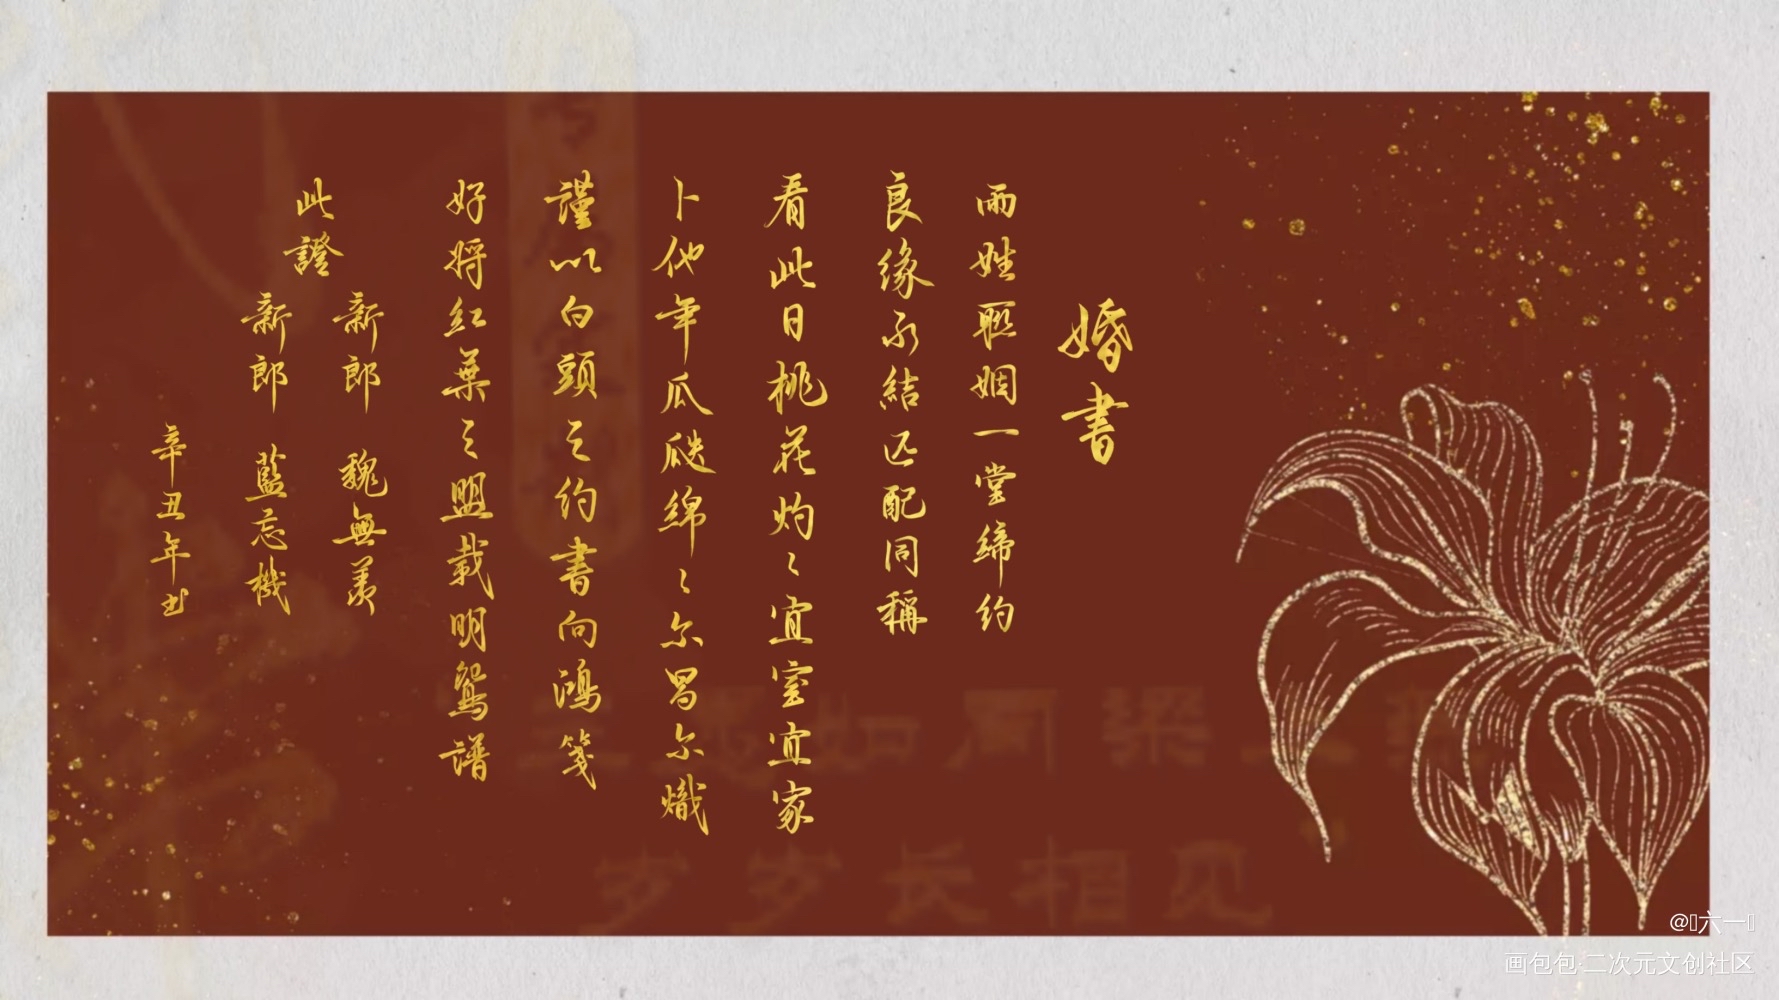 婚書
兩姓聯姻一堂締约
良缘永結匹配同稱
看此日桃花灼〻宜室宜家
卜他年瓜瓞綿〻尔昌尔熾
謹以白頭之约書向鴻箋
好将紅葉之盟載明鴛譜
此證
新郎 魏無羡
新郎 藍忘機
辛丑年书
岁岁长相见
@六一
画包包·二次元文创社区